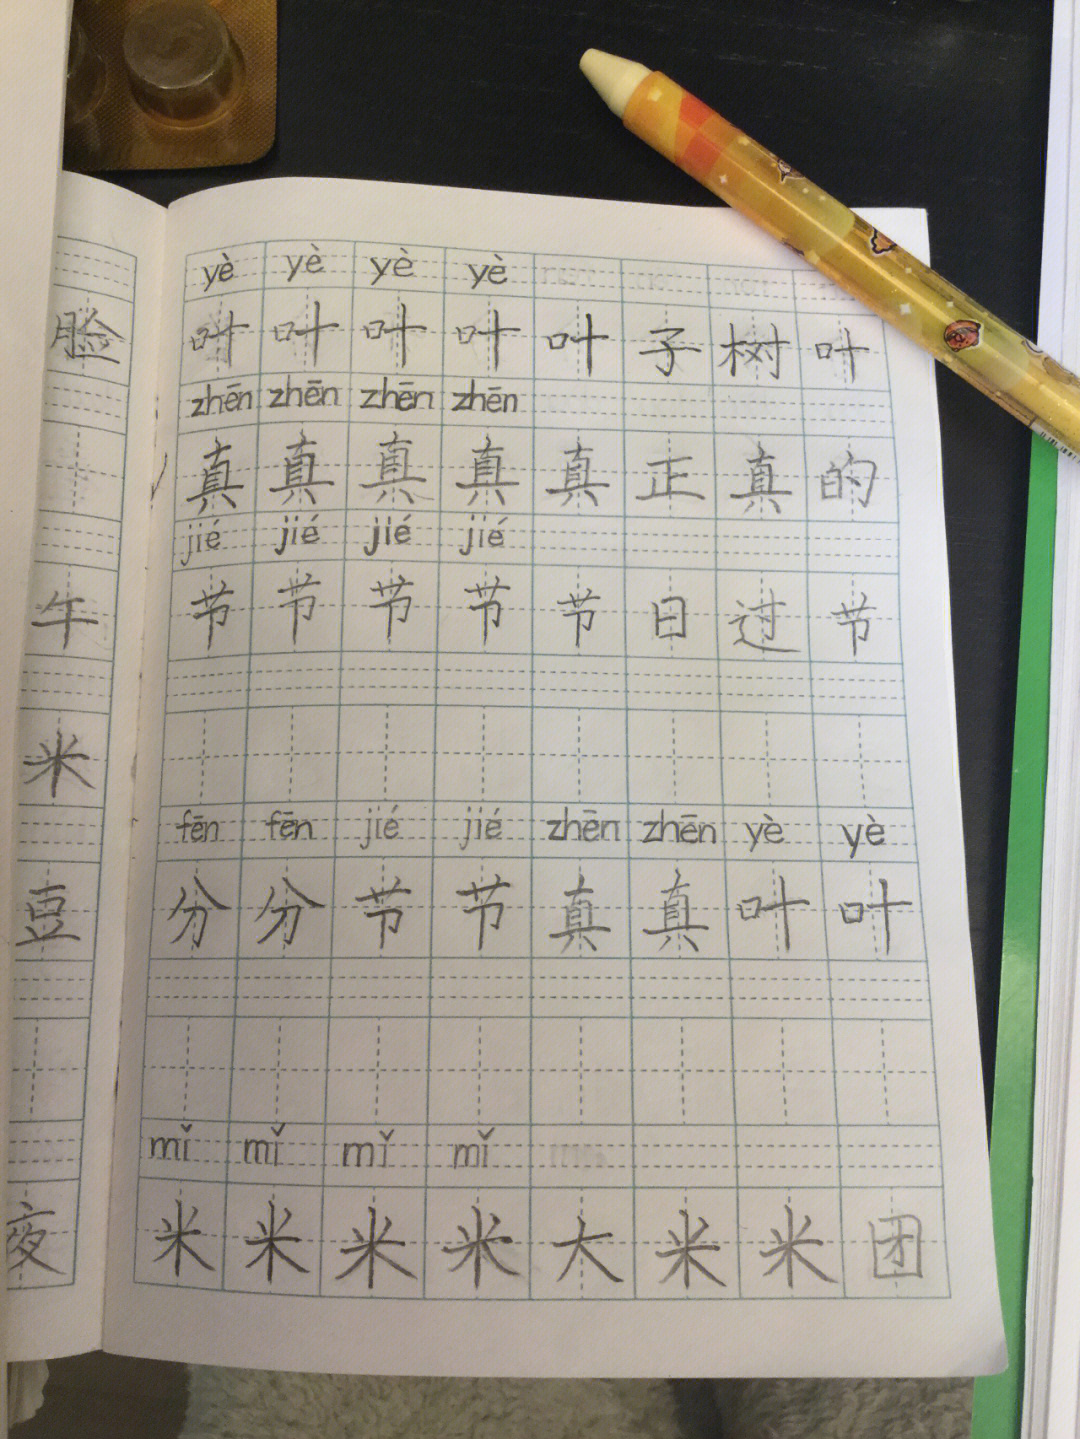 yè yè yè yè
叶 叶 叶 叶 叶 子 树 叶
zhēn zhēn zhēn zhēn
真 真 真 真 真 正 真 的
jié jié jié jié
节 节 节 节 节 日 过 节
fēn fēn jié jié zhēn zhēn yè yè
分 分 节 节 真 真 叶 叶
mǐ mǐ mǐ mǐ
米 米 米 米 大 米 米 团
脸
午
米
豆
夜